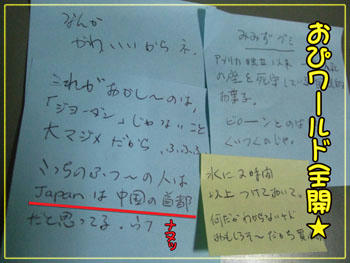 なんか
かわいいからネ.
これがおかし〜のは,
「ジョーダン」じゃないこと
大マジメだから.ふふふ
こっちのふつ〜の人は
Japanは中国の首都
だと思ってる.らう
ナヌッ
みみずグミ
アメリカ独立以来
の座を死守している
お菓子.
ビローンとのば
くいつくのじゃ.
水に2時間
以上つけておいて.
何だかわからないけど
おもしろそ〜だから買
おぴワールド全開★